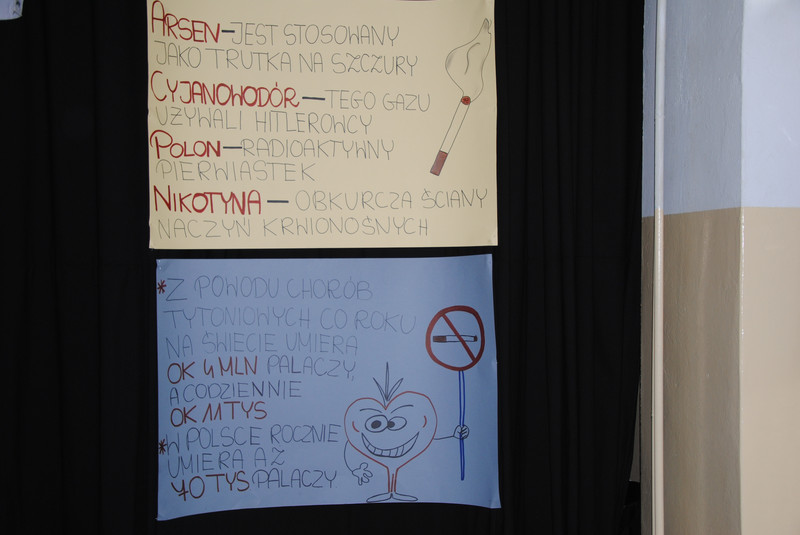 ARSEN-JEST STOSOWANY
JAKO TRUTKA NA SZCZURY
CYJANOWODÓR - TEGO GAZU
UŻYWALI HITLEROWCY
POLON-RADIOAKTYWNY
PIERWIASTEK
NIKOTYNA - OBKURCZA ŚCIANY
NACZYŃ KRWIONOŚNYCH
*Z POWODU CHORÓB
TYTONIOWYCH CO ROKU
NA ŚWIECIE UMIERA
OK 4 MLN PALACZY,
A CODZIENNIE
OK 11 TYS
*W POLSCE ROCZNIE
UMIERA AŻ
70 TYS PALACZY